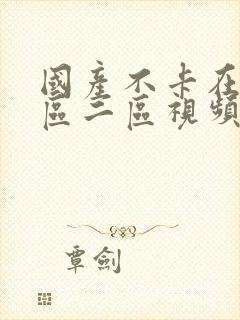 國產不卡在
區二區視頻
覃劍